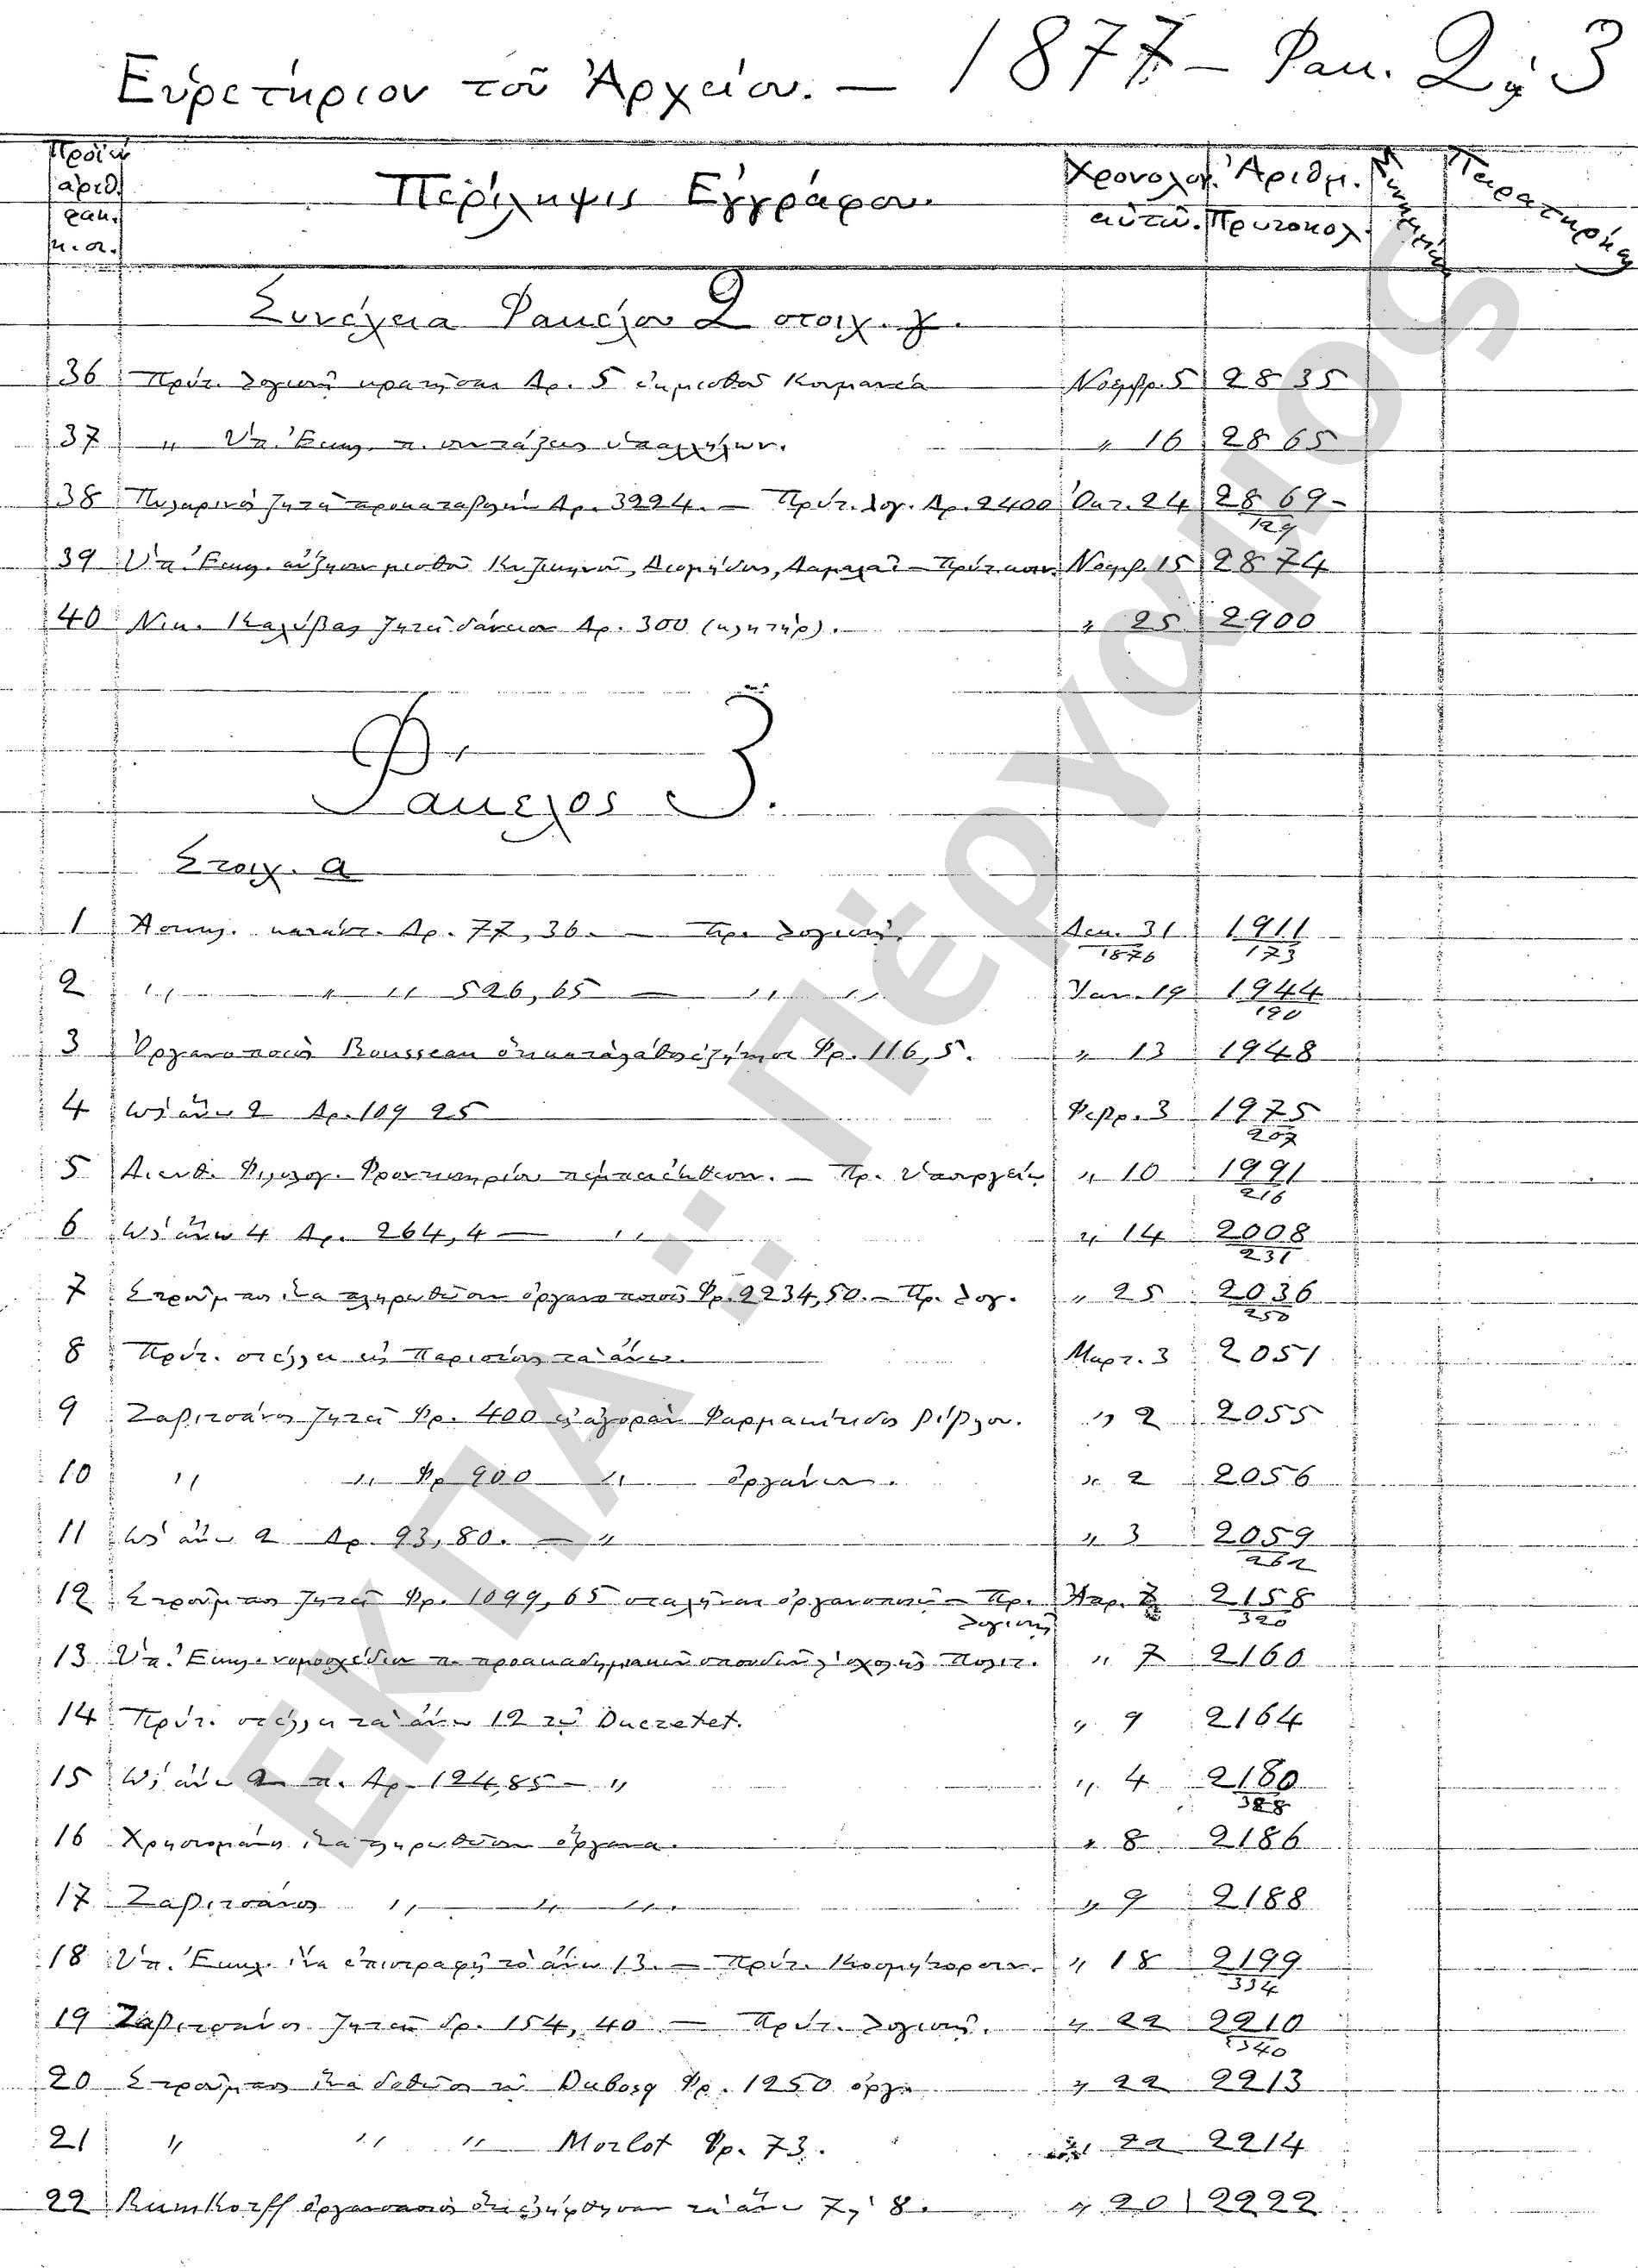 Εὑρετήριον τοῦ Ἀρχείου. — 1877 — Φακ. 2 ϗ 3
ἀριθ. φακ. κ. σ.
Περίληψις Ἐγγράφου.
Χρονολογ. αὐτῶν.
Ἀριθμ. Πρωτοκολ.
Συνέχεια Φακέλου 2 στοιχ. γ.
36 Πρύτ. λογιστῇ κρατῆσαι Δρ. 5 Νοεμβρ. 5 2835
37 " Ὑπ. Ἐκκλ. π. συντάξεως ὑπαλλήλων. " 16 2865
38 ζητεῖ προκαταβολὴν Δρ. 3224. — Πρύτ. λογ. Δρ. 2400 Ὀκτ. 24 2869 – 129
39 Ὑπ. Ἐκκλ. αὔξησιν μισθοῦ Νοεμβ. 15 2874
40 Νικ. Καλύβας ζητεῖ δάνειον Δρ. 300 (κλητήρ). " 25 2900
Φάκελος 3.
Στοιχ. α
1 Δρ. 77,36. — Πρ. λογιστῇ. Δεκ. 31 1876 1911 173
2 " " " 526,65 — " " Ἰαν. 19 1944 190
3 Ὀργανοποιὸς Rousseau Φρ. 116,5. " 13 1948
4 Ὡς ἄνω 2 Δρ. 109 25 Φεβρ. 3 1975 207
5 Διευθ. Φιλολ. Φροντιστηρίου — Πρ. Ὑπουργεῖον " 10 1991 216
6 Ὡς ἄνω 4 Δρ. 264,4 — " " 14 2008 231
7 Στροῦμπος ἵνα πληρωθῶσιν ὀργανοποιοῖς Φρ. 2234,50. — Πρ. λογ. " 25 2036 250
8 Πρύτ. στέλλει εἰς Παρισίους τὰ ἄνω. Μαρτ. 3 2051
9 Ζαβιτσάνος ζητεῖ Φρ. 400 εἰς ἀγορὰν Φαρμακευτικῶν βιβλίων. " 2 2055
10 " " Φρ 900 " ὀργάνων. " 2 2056
11 Ὡς ἄνω 2 Δρ. 93,80. — " " 3 2059 262
12 Στροῦμπος ζητεῖ Φρ. 1099,65 σταλῆναι ὀργανοποιῷ — Πρ. λογιστῇ Ἀπρ. 7 2158 320
13 Ὑπ. Ἐκκλ. νομοσχέδιον π. προακαδημαϊκῶν σπουδῶν " 7 2160
14 Πρύτ. στέλλει τὰ ἄνω 12 τῷ Ducretet. " 9 2164
15 Ὡς ἄνω 2 π. Δρ. 124,85 — " " 4 2180 328
16 Χρηστομάνος ἵνα πληρωθῶσιν ὄργανα. " 8 2186
17 Ζαβιτσάνος " " " " 9 2188
18 Ὑπ. Ἐκκλ. ἵνα ἐπιστραφῇ τὸ ἄνω 13. — Πρύτ. Κοσμήτορσιν. " 18 2199 334
19 Ζαβιτσάνος ζητεῖ δρ. 154,40 — Πρύτ. λογιστῇ. " 22 2210 340
20 Στροῦμπος ἵνα δοθῶσι τῷ Dubosq Φρ. 1250 ὄργ. " 22 2213
21 " " " Morlot Φρ. 73. " 22 2214
22 Rumkorff ὀργανοποιὸς ὅτι ἐλήφθησαν τὰ ἄνω 7, 8. " 20 2222
ΕΚΠΑ :: Πέργαμος